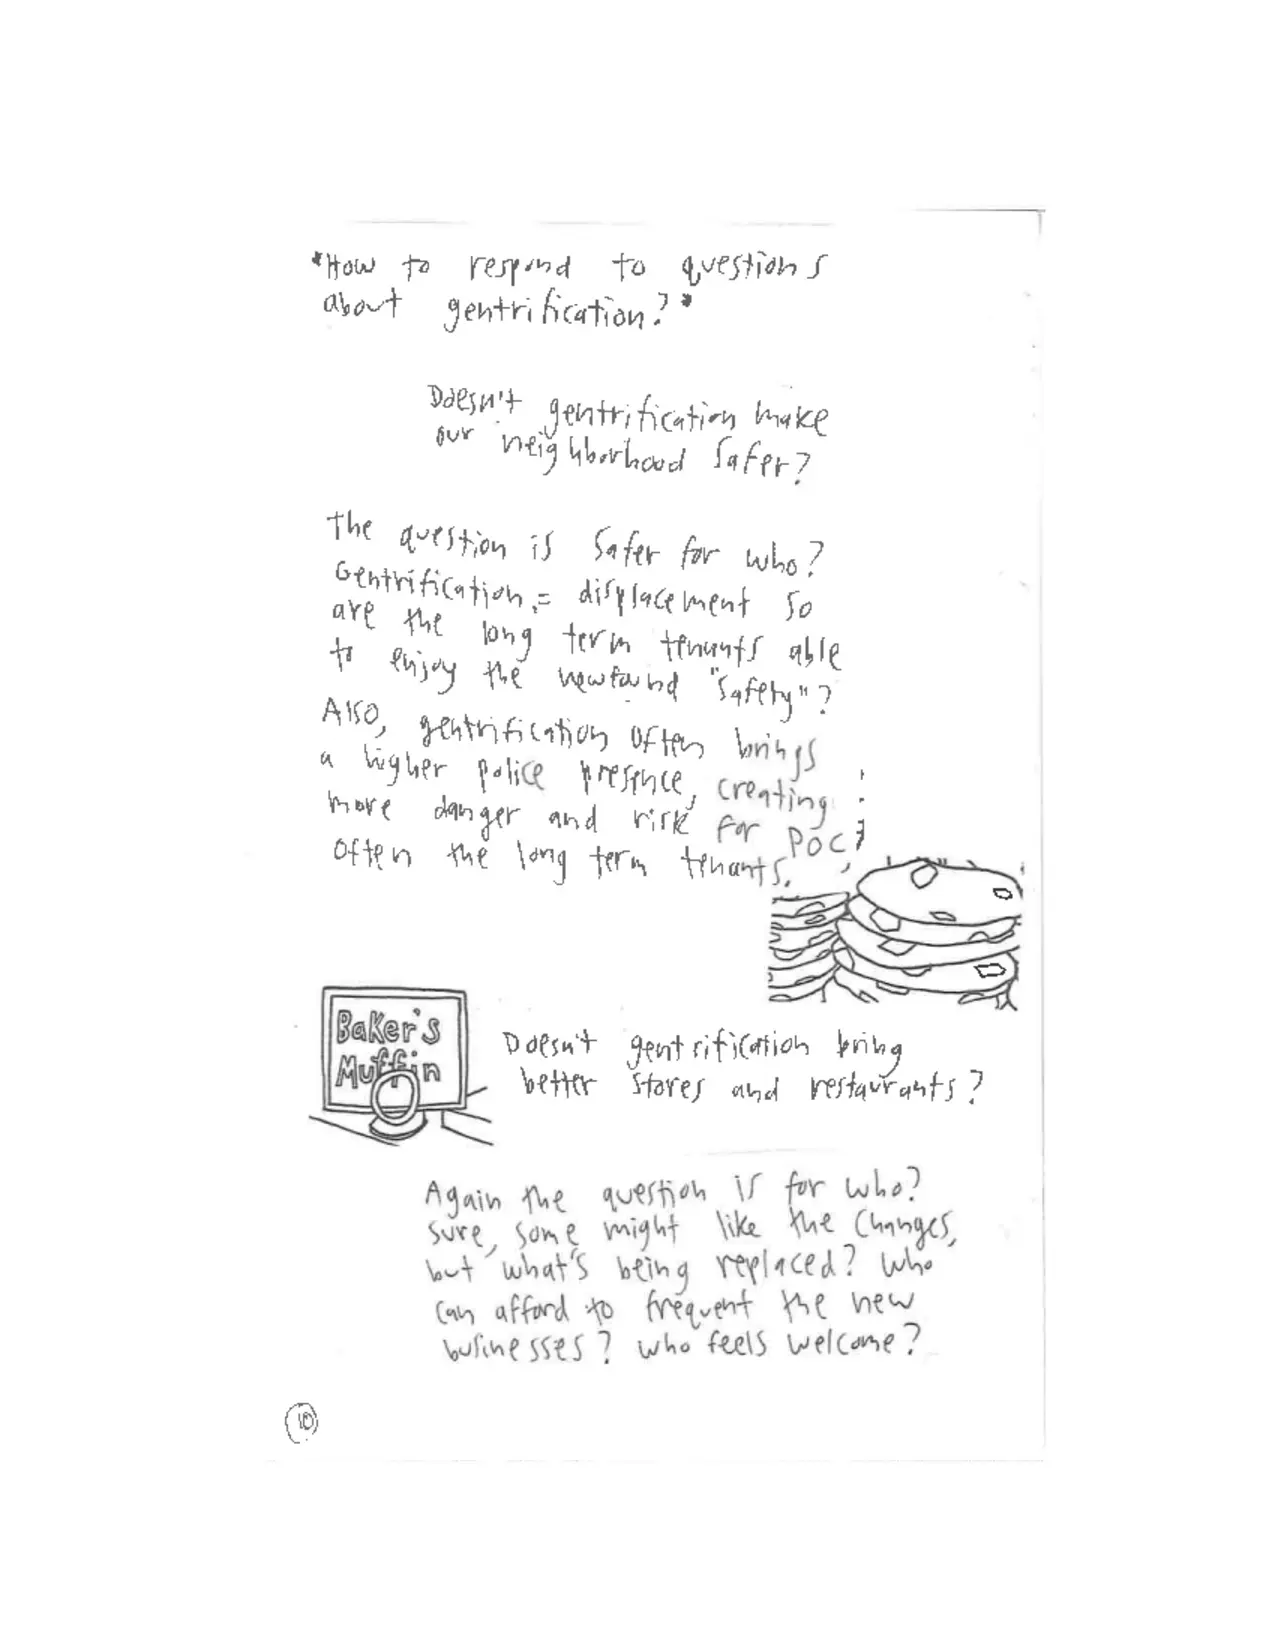 *How to respond to questions
about gentrification?*
Doesn't gentrification make
our neighborhood safer?
The question is safer for who?
Gentrification = displacement so
are the long term tenants able
to enjoy the newfound "safety"?
Also, gentrification often brings
a higher police presence, creating
more danger and risk for POC,
often the long term tenants.
Baker's
Muffin
Doesn't gentrification bring
better stores and restaurants?
Again the question is for who?
sure, some might like the changes,
but what's being replaced? Who
can afford to frequent the new
businesses? who feels welcome?
10